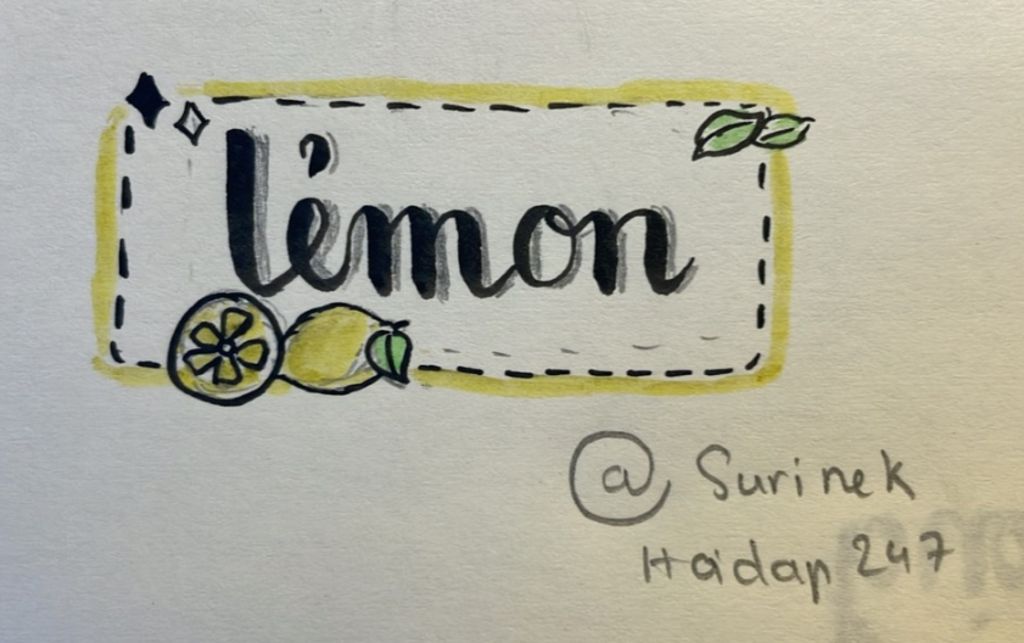 l'emon
@ Surinek
Hadap 247